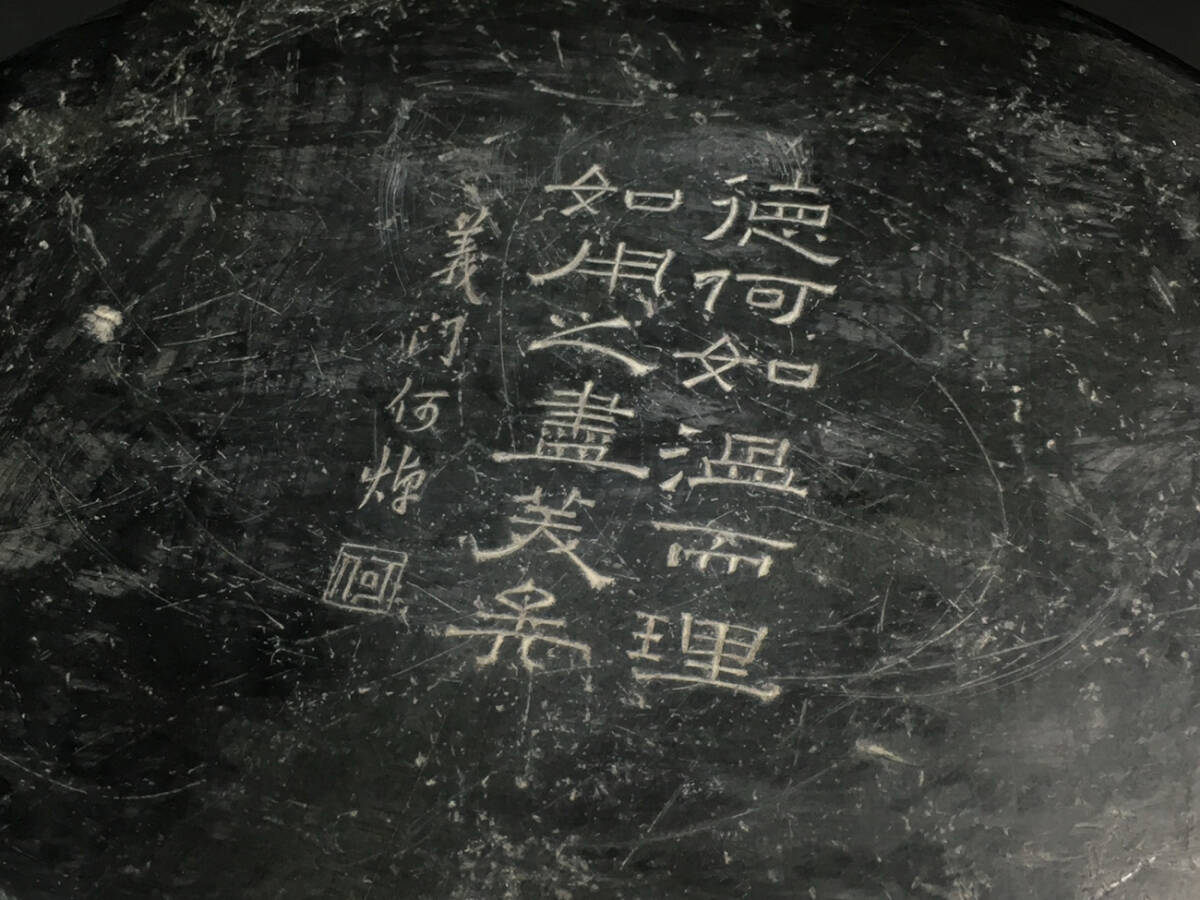 德何如溫而理
如用之盡美矣
義門何焯
何